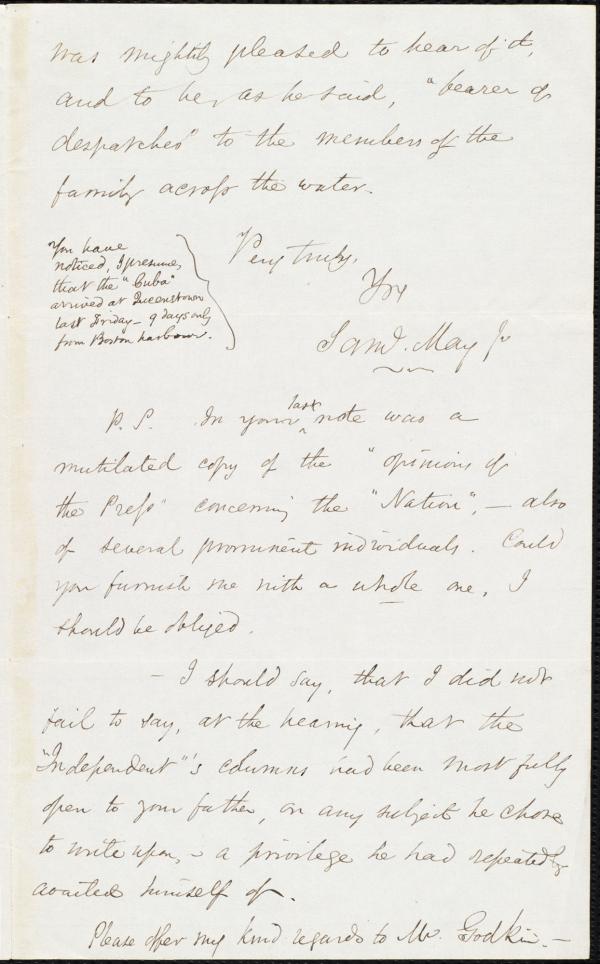 was mightily pleased to hear of it,
and to be, as he said, "bearer of
despatches" to the members of the
family across the water.
Very truly,
Yrs
Saml. May Jr
You have
noticed, I presume,
that the "Cuba"
arrived at Queenstown
last Friday - 9 days only
from Boston harbour.
P.S. In your last note was a
mutilated copy of the "opinions of
the Press" concerning the "Nation", - also
of several prominent individuals. Could
you furnish me with a whole one, I
should be obliged.
- I should say, that I did not
fail to say, at the hearing, that the
"Independent"'s columns had been most fully
open to your father, on any subject he chose
to write upon, - a privilege he had repeatedly
availed himself of.
Please offer my kind regards to Mr. Godkin. -